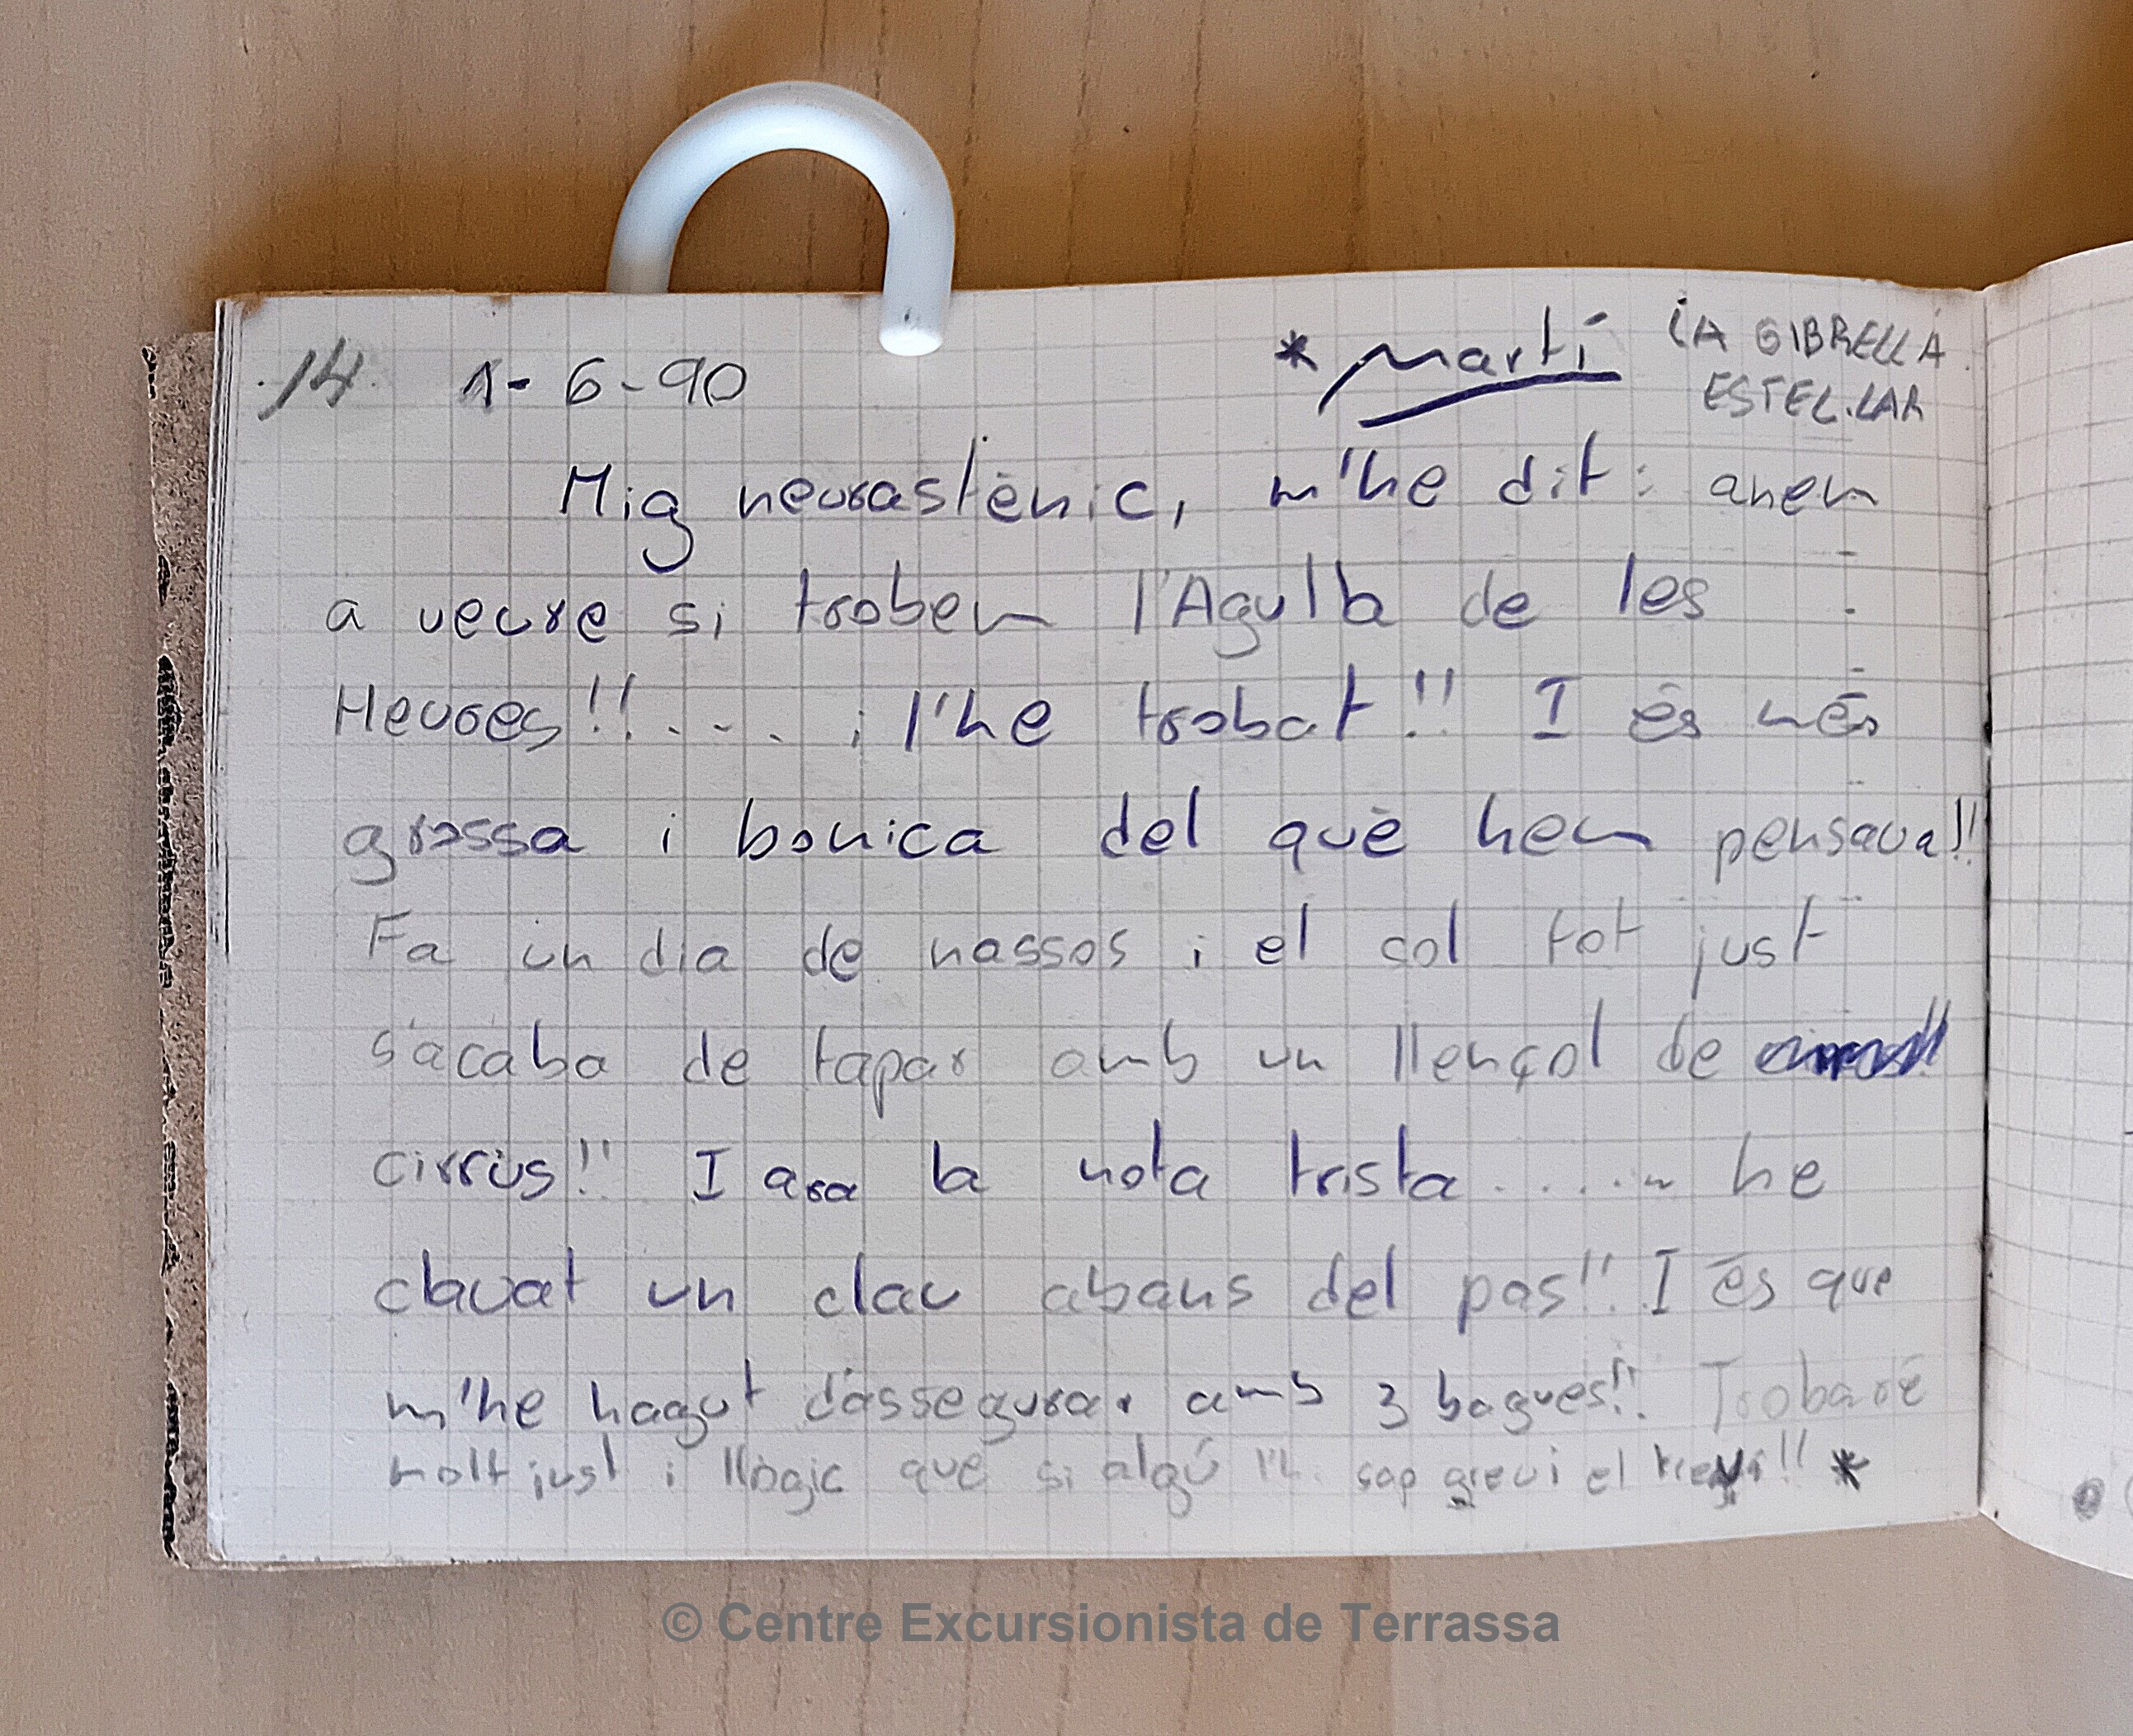 14 1-6-90 * Martí LA GIBRELLA
ESTEL.LAR
Mig neurastènic, m'he dit: anem
a veure si trobem l'Agulla de les
Heures!!.... i l'he trobat!! I és més
grossa i bonica del què hem pensava!!
Fa un dia de nassos i el sol tot just
s'acaba de tapar amb un llençol de
cirrus!! I ara la nota trista..... he
clavat un clau abans del pas!! I és que
m'he hagut d'assegurar amb 3 bagues!! Trobaré
molt just i llògic que si algú li sap greu i el tregui!! *
© Centre Excursionista de Terrassa